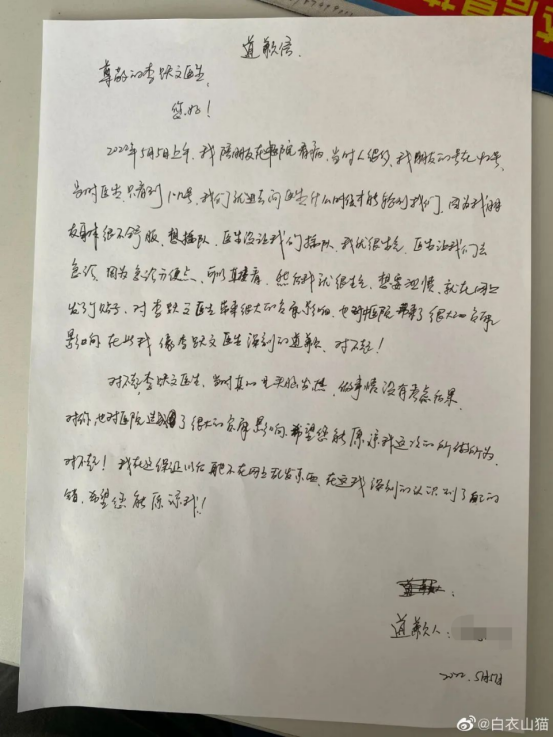 道歉信.
尊敬的李跃文医生,
您好!
2022年5月5日上午,我陪朋友在医院看病,当时人很多,我朋友的号在42号,
当时医生只看到19号,我们就进去问医生什么时候才能轮到我们,因为我朋
友身体很不舒服,想插队,医生没让我们插队,我就很生气,医生让我们去
急诊,因为急诊方便点,可以直接看,然后我就很生气,想要泄愤,就在网上
发了帖子,对李跃文医生带来很大的名声影响,也对医院带来了很大的名声
影响,在此我像李跃文医生深刻的道歉,对不起!
对不起,李跃文医生,当时真的是头脑发热,做事情没有考虑后果,
对你也对医院造成了很大的名声影响,希望您能原谅我这次的所做所为,
对不起!我在这保证以后绝不在网上乱发东西,在这我深刻的认识到了自己的
错,希望您能原谅我!
道歉人:
2022.5月5日
@白衣山猫